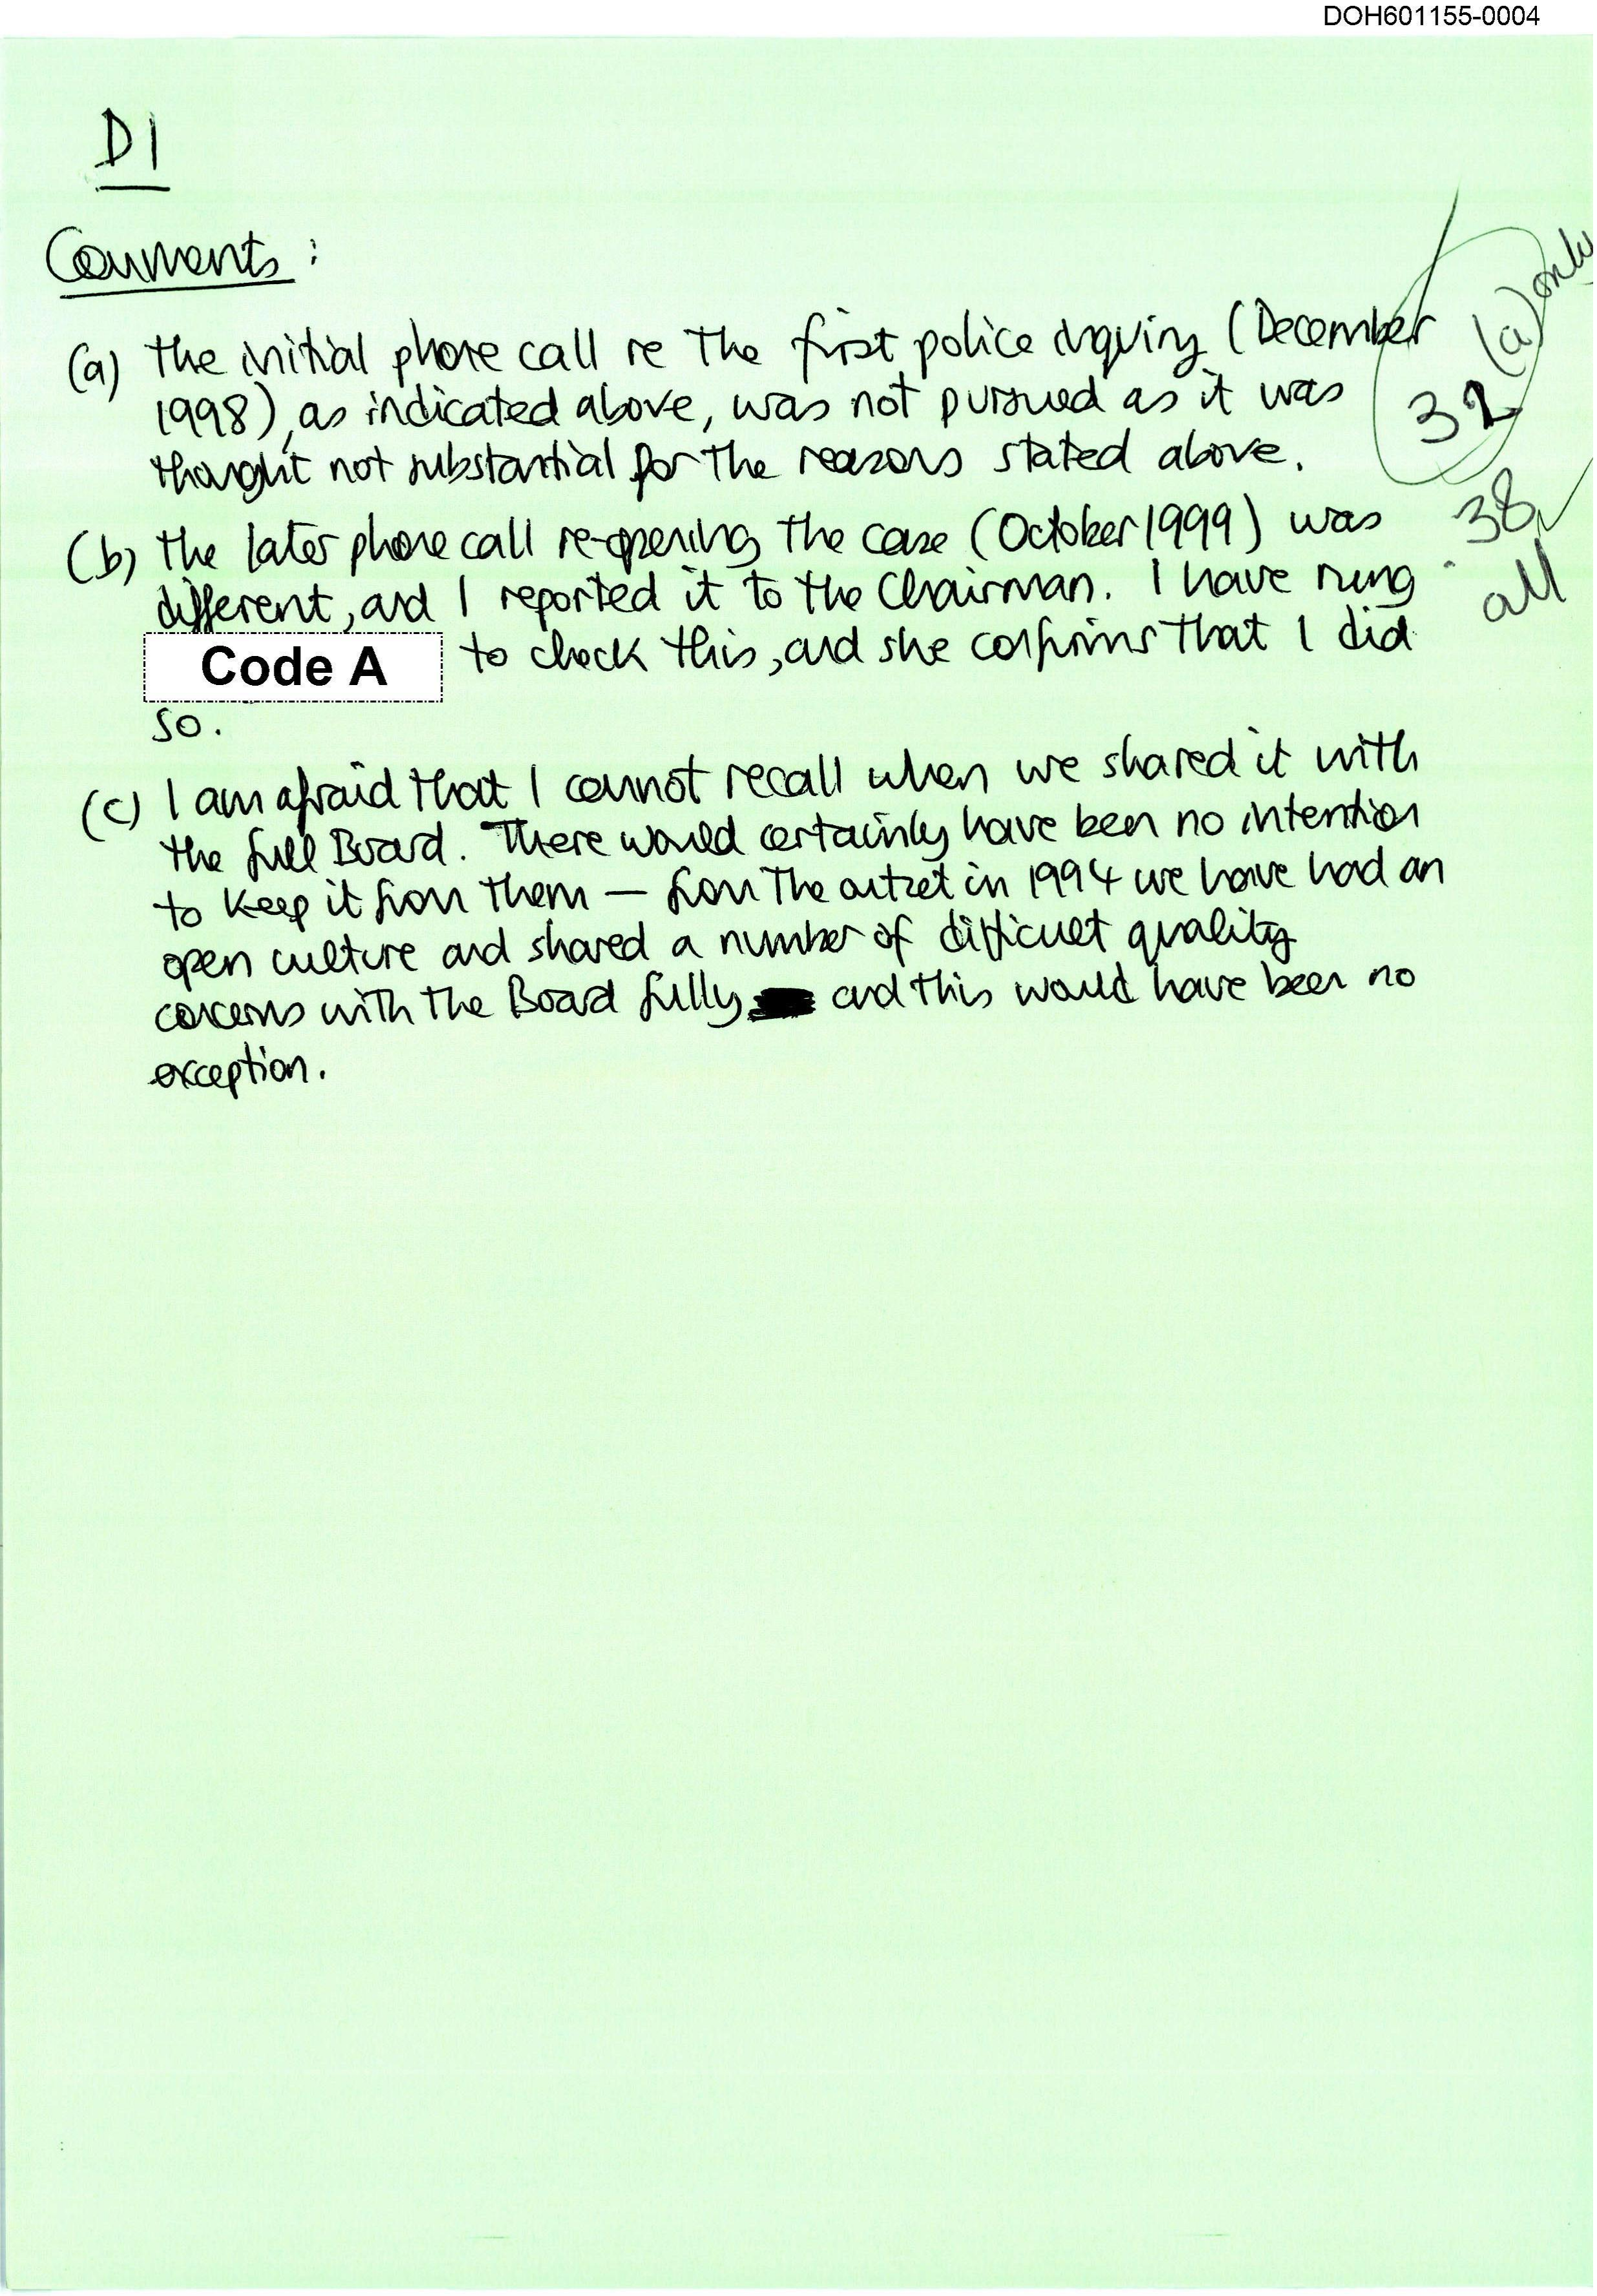 DOH601155-0004
D1
Comments :
(a) The initial phone call re the first police inquiry (December
1998), as indicated above, was not pursued as it was
thought not substantial for the reasons stated above.
32 (a) only
(b) The later phone call re-opening the case (October 1999) was
different, and I reported it to the Chairman. I have rung
Code A to check this, and she confirms that I did
so.
38
all
(c) I am afraid that I cannot recall when we shared it with
the full Board. There would certainly have been no intention
to keep it from them — from the outset in 1994 we have had an
open culture and shared a number of difficult quality
concerns with the Board fully and this would have been no
exception.